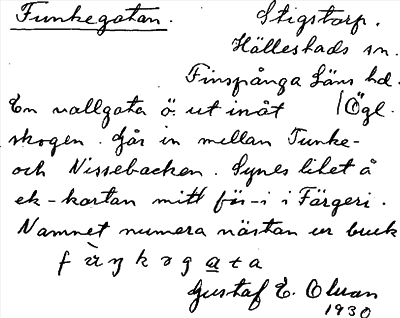 Funkegatan. Stigstorp.
Hällestads sn.
Finspånga Läns hd.
En vallgata ö. ut inåt /Ögl.
skogen. Går in mellan Funke-
och Nissebacken. Synes litet å
ek-kartan mitt för -i i Färgeri.
Namnet numera nästan ur bruk
Gustaf E. Olsson
1930